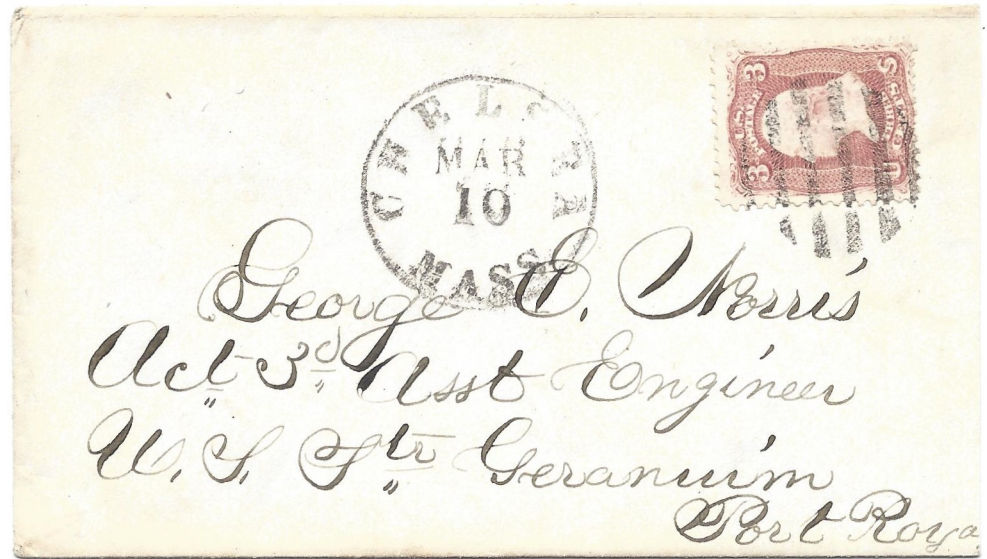 CHELSEA
MAR
10
MASS
3 3
U S
George E. Norris
Act 3d Asst Engineer
U. S. Str Geranuim
Port Roya